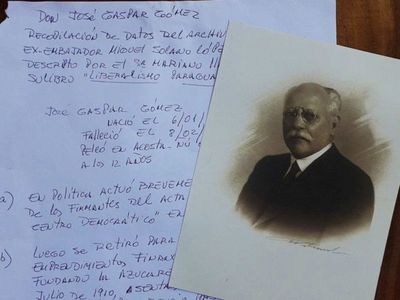 DON JOSÉ GASPAR GÓMEZ
RECOPILACIÓN DE DATOS DEL ARCHIV
EX-EMBAJADOR MIGUEL SOLANO LÓPE
DESCRIPTO POR EL SR MARIANO
SU LIBRO "LIBERALISMO PARAGUA
JOSÉ GASPAR GÓMEZ
NACIÓ EL 6/01/
FALLECIÓ EL 8/02/
PELEÓ EN ACOSTA-ÑU
A LOS 12 AÑOS
a) EN POLÍTICA ACTUÓ BREVEME
DE LOS FIRMANTES DEL ACTA
CENTRO DEMOCRÁTICO" EN
b) LUEGO SE RETIRÓ PARA
EMPRENDIMIENTOS FINAN
FUNDANDO LA AZUCARE
JULIO DE 1910, ASENTA